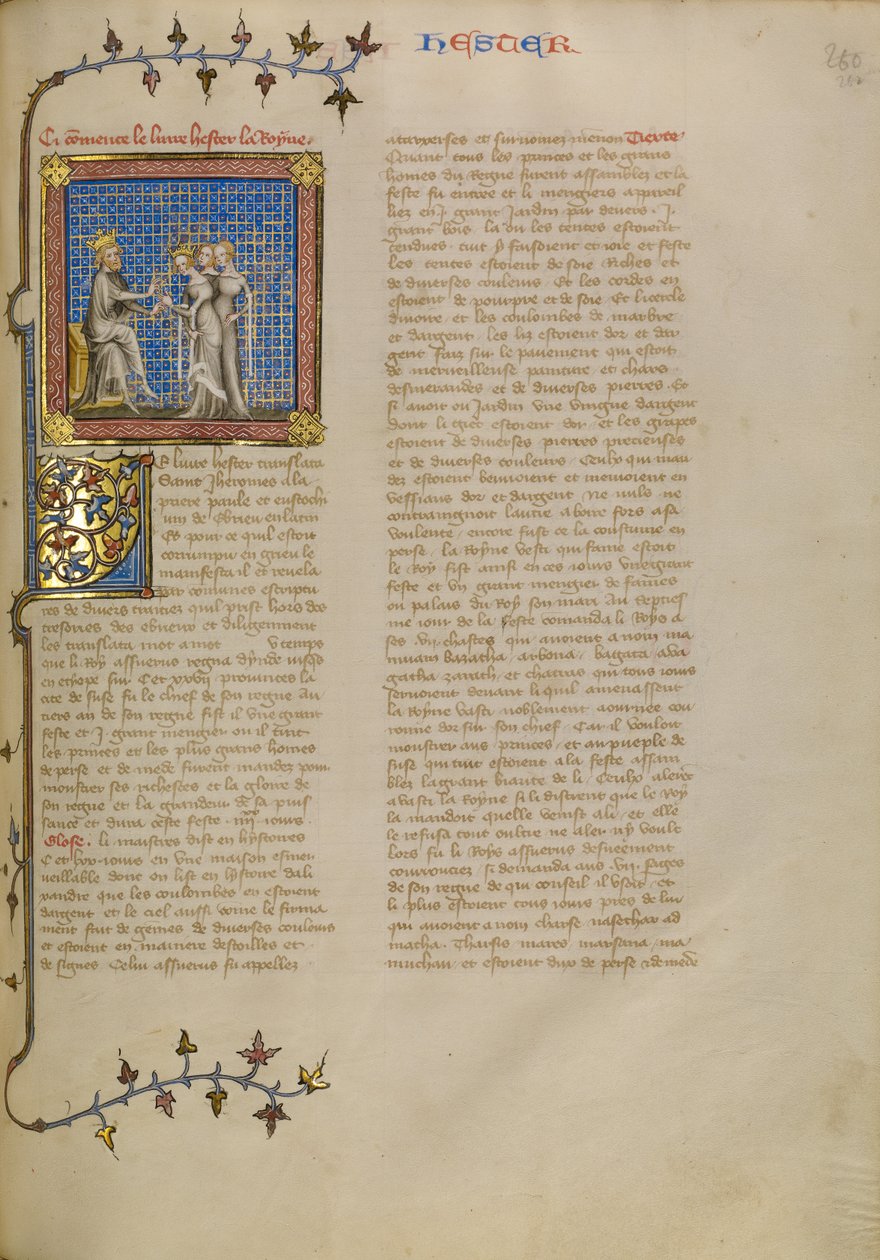 HESTER
260
Ci cōmence le livre hester la Royne.
E livre hester translata
Saint Jheromes a la
priere paule et eustochi
um de ebrieu en latin
Et pour ce quil estoit
corrumpu en grieu le
manifesta il et revela
par communes escriptu
res de divers traitiez quil prist hors des
tresories des ebrieux et diligenment
les translata mot a mot V temps
que li Roy assuerus regna dynde jusqs
en ethope sur C et xxvij provinces la
cite de suse fu le chief de son regne Au
tiers an de son regne fist il une grant
feste et .j. grant mengier ou il tint
les princes et les plus grans homes
de perse et de mede furent mandez pour
monstrer ses richesces et la gloire de
son regne et la grandeur de sa puis
sance et dura ceste feste iiijxx iours.
Glose. li maistres dist en hystoires
C et iours en une maison esmer
veillable dont on list en hystoire dali
xandre que les coulombes en estoient
dargent et le ciel aussi come le firma
ment fait de gemes de diverses couleurs
et estoient en maniere destoilles et
de signes. Celui assuerus fu appellez
atarxerses et surnomez menon Tiexte
Quant tous les princes et les grans
homes du Regne furent assamblez et la
feste fu entree et li mengiers appareil
liez en .j. grant jardin par devers .j.
grant bois la ou les tentes estoient
tendues tuit y faisoient et joie et feste
les tentes estoient de soie Riches et
de diverses couleurs Et les cordes en
estoient de pourpre et de soie Et li cercle
divoire et les coulombes de marbre
et dargent les liz estoient dor et dar
gent faiz sur le pavement qui estoit
de merveilleuse painture et chars
desmeraudes et de diverses pierres. Et
si avoit ou jardin une vingne dargent
dont li ciet estoient dor et les grapes
estoient de diverses pierres precieuses
et de diverses couleurs Ceulx qui man
dez estoient bevoient et menioient en
vessiaus dor et dargent ne nuls ne
contraingnoit lautre a boire fors a sa
voulente encore fust ce la coustume en
perse. la Royne vasti qui fame estoit
le Roy fist aussi en ces iours une grant
feste et un grant mengier de fames
ou palais du Roy son mari Au septies
me iour de la feste comanda li Roys a
ses .vij. chastes qui avoient a nom ma
nuam bazatha arbona bagata aba
gatha zarath et charras qui tous iours
servoient devant li quil amenassent
la Royne vasti noblement aournee cou
ronne dor sur son chief Car il vouloit
monstrer aus princes et au pueple de
suse qui tuit estoient a la feste assam
blez la grant biaute de li Ceulx alerent
a vasti la Royne si li distrent que le Roy
la mandoit quelle venist a li et elle
le refusa tout oultre ne aler ny voult
lors fu li Roys assuerus desueement
courrouciez si demanda aus .vij. sages
de son regne de qui conseil il usoit et
li plus estoient tous iours pres de lui
qui avoient a nom charse nasechar ad
matha. Tharsis mares marsana ma
muchan et estoient dux de perse & de mede